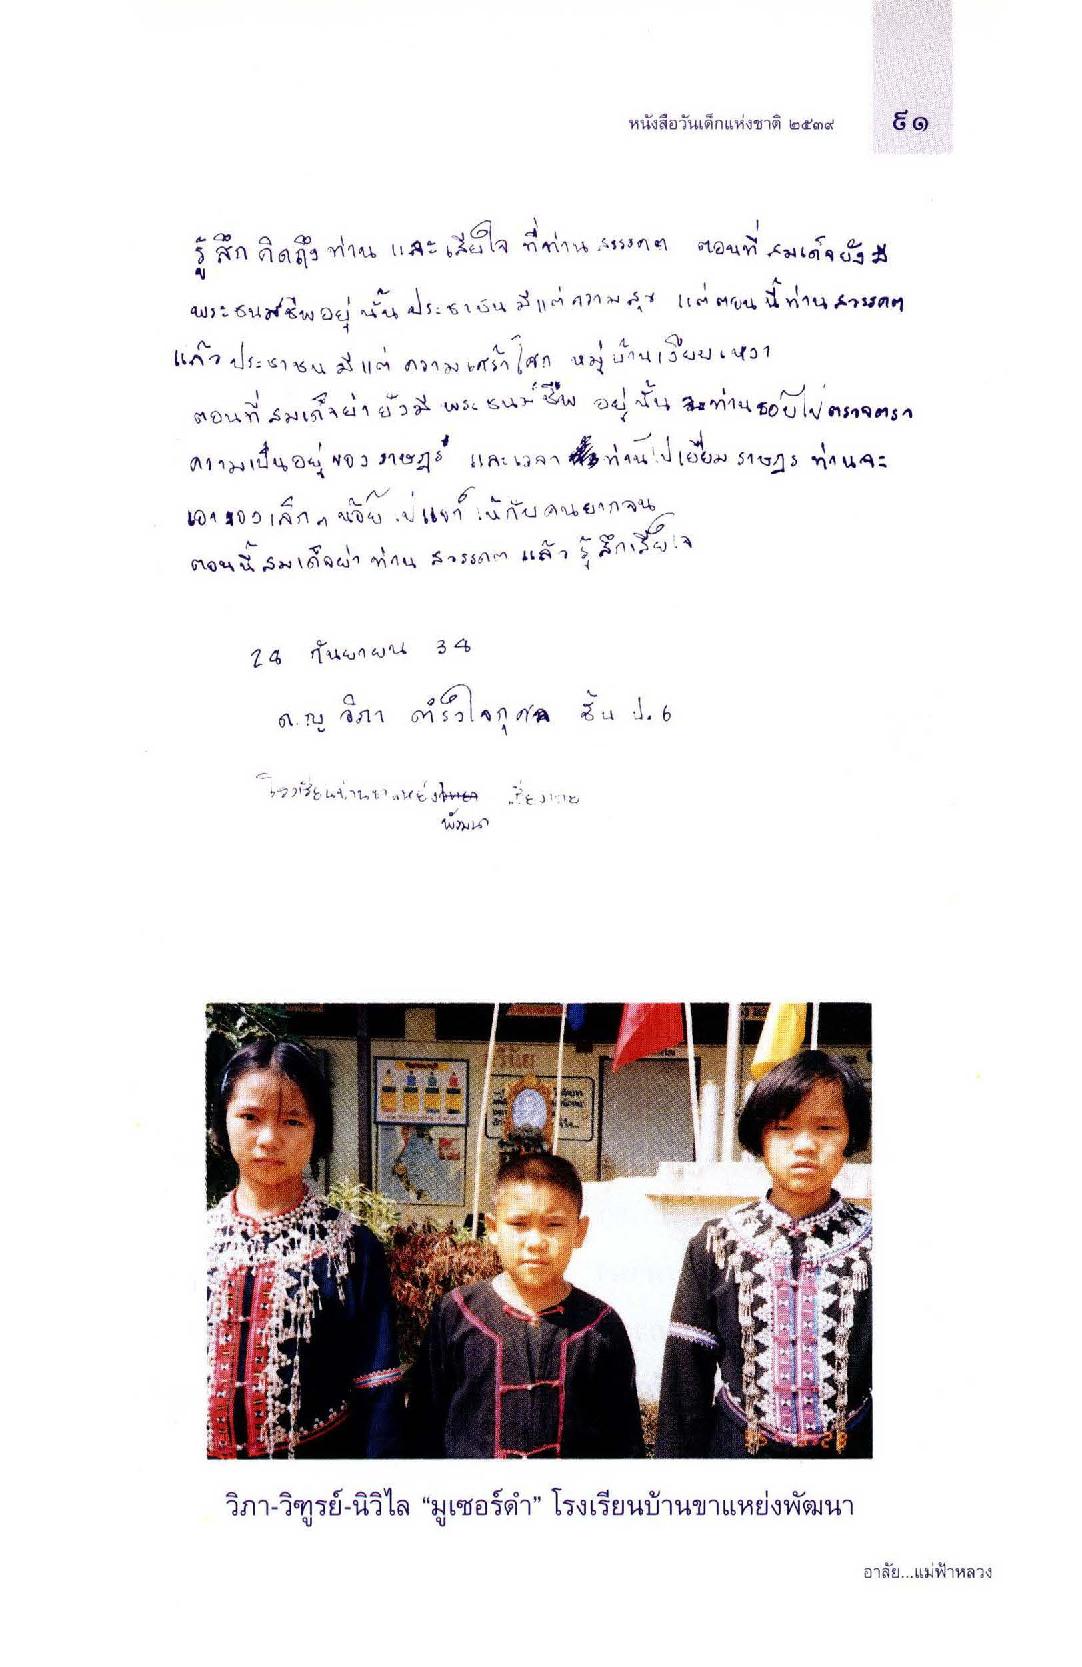 หนังสือวันเด็กแห่งชาติ ๒๕๓๙ ๙๑
รู้สึกคิดถึงท่าน และเสียใจ ที่ท่านสวรรคต ตอนที่สมเด็จยังมี
พระชนม์ชีพอยู่นั้นประชาชนมีแต่ความสุข แต่ตอนนี้ท่านสวรรคต
แล้วประชาชนมีแต่ความเศร้าโศก หมู่บ้านเงียบเหงา
ตอนที่สมเด็จย่ายังมีพระชนม์ชีพ อยู่นั้น ท่านชอบไปตรวจตรา
ความเป็นอยู่ของราษฎร์ และเวลา ท่านไปเยี่ยมราษฎร ท่านจะ
เอาของเล็กๆ น้อย ไปแจก ให้กับคนยากจน
ตอนนี้สมเด็จย่าท่าน สวรรคต แล้ว รู้สึกเสียใจ
28 กันยายน 38
ด.ญ วิภา ดำรงใจกุศล ชั้น ป.6
โรงเรียนบ้านขาแหย่ง เชียงราย
พัฒนา
วิภา-วิฑูรย์-นิวิไล “มูเซอร์ดำ” โรงเรียนบ้านขาแหย่งพัฒนา
อาลัย...แม่ฟ้าหลวง